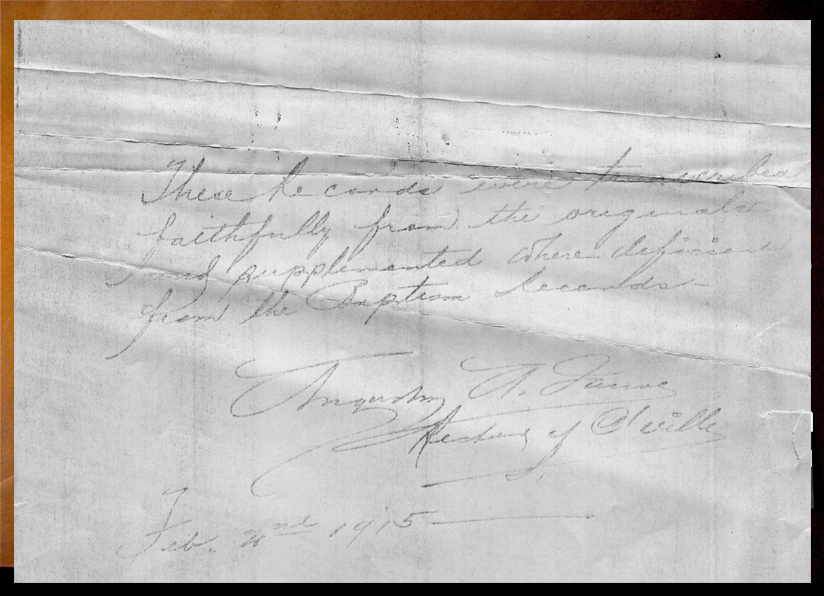 These Records were transcribed
faithfully from the originals
and supplemented where deficient
from the Baptism Records-
Augustin
Rector of C'ville
Feb. 2nd 1915